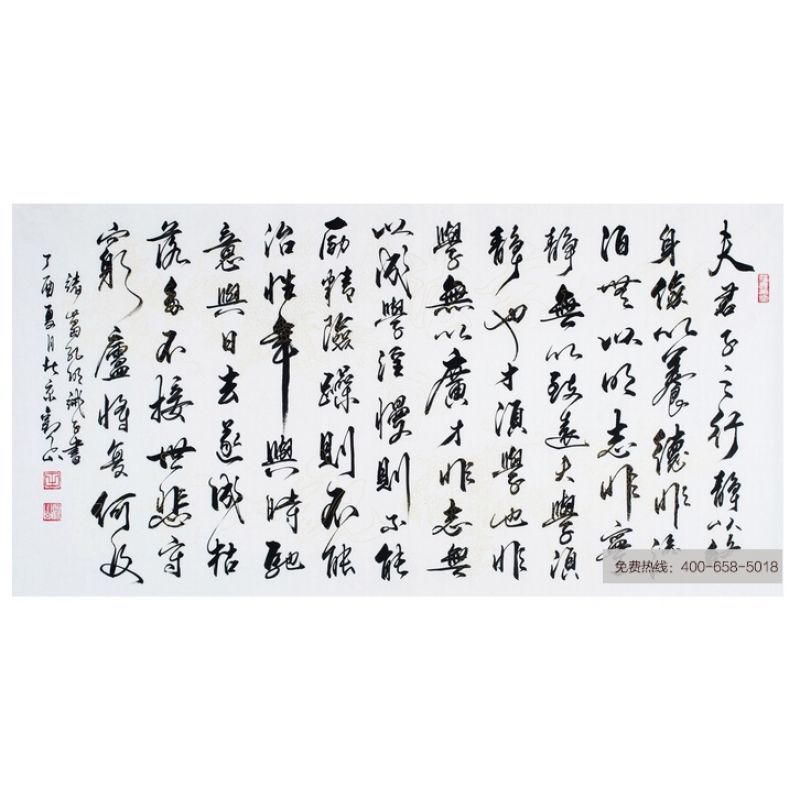 夫君子之行靜以修
身儉以養德非澹
泊無以明志非寧
靜無以致遠夫學須
靜也才須學也非
學無以廣才非志無
以成學淫慢則不能
励精險躁則不能
治性年與時馳
意與日去遂成枯
落多不接世悲守
窮廬將复何及
諸葛孔明誡子書
丁酉夏月北京
免费热线：400-658-5018